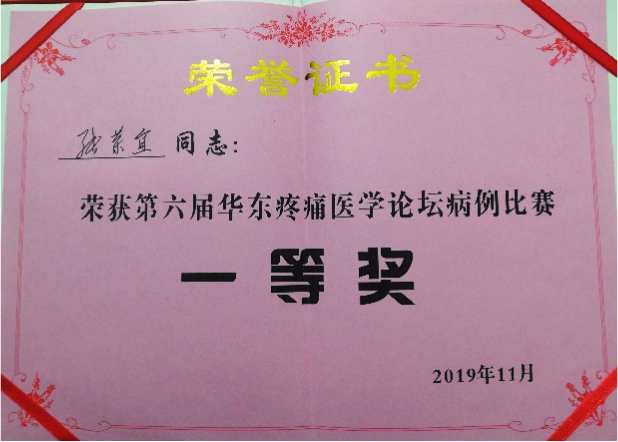 荣誉证书
张荣宜 同志：
荣获第六届华东疼痛医学论坛病例比赛
一等奖
2019年11月